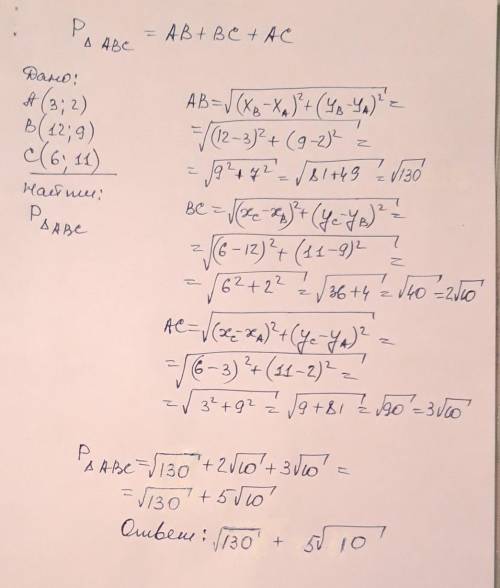 P△ABC = AB + BC + AC
Дано:
A(3; 2)
B(12; 9)
C(6; 11)
Найти:
P△ABC
AB = √((x_B − x_A)² + (y_B − y_A)²) =
= √((12 − 3)² + (9 − 2)²) =
= √(9² + 7²) = √(81 + 49) = √130
BC = √((x_C − x_B)² + (y_C − y_B)²) =
= √((6 − 12)² + (11 − 9)²) =
= √(6² + 2²) = √(36 + 4) = √40 = 2√10
AC = √((x_C − x_A)² + (y_C − y_A)²) =
= √((6 − 3)² + (11 − 2)²) =
= √(3² + 9²) = √(9 + 81) = √90 = 3√10
P△ABC = √130 + 2√10 + 3√10 =
= √130 + 5√10
Ответ: √130 + 5√10